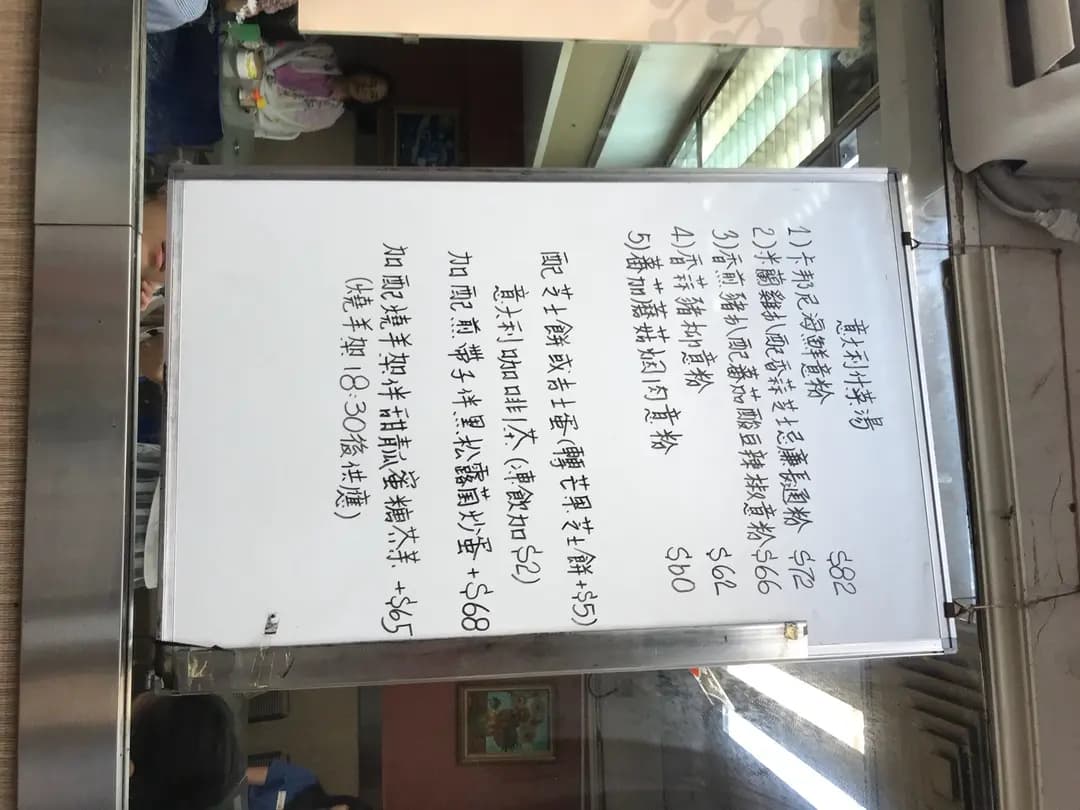 意大利什菜湯
1) 卡邦尼海鮮意粉 $82
2) 米蘭雞扒配香蒜芝士忌廉長通粉 $72
3) 香煎豬扒配蕃加酸豆辣椒意粉 $66
4) 香蒜豬柳意粉 $62
5) 蕃加蘑菇烟肉意粉 $60
配芝士餅或吉士蛋(轉芒果芝士餅+$5)
意大利咖啡/茶(凍飲加$2)
加配煎帶子伴黑松露菌炒蛋 +$68
加配燒羊架伴甜蜜糖芥 +$65
(燒羊架18:30後供應)